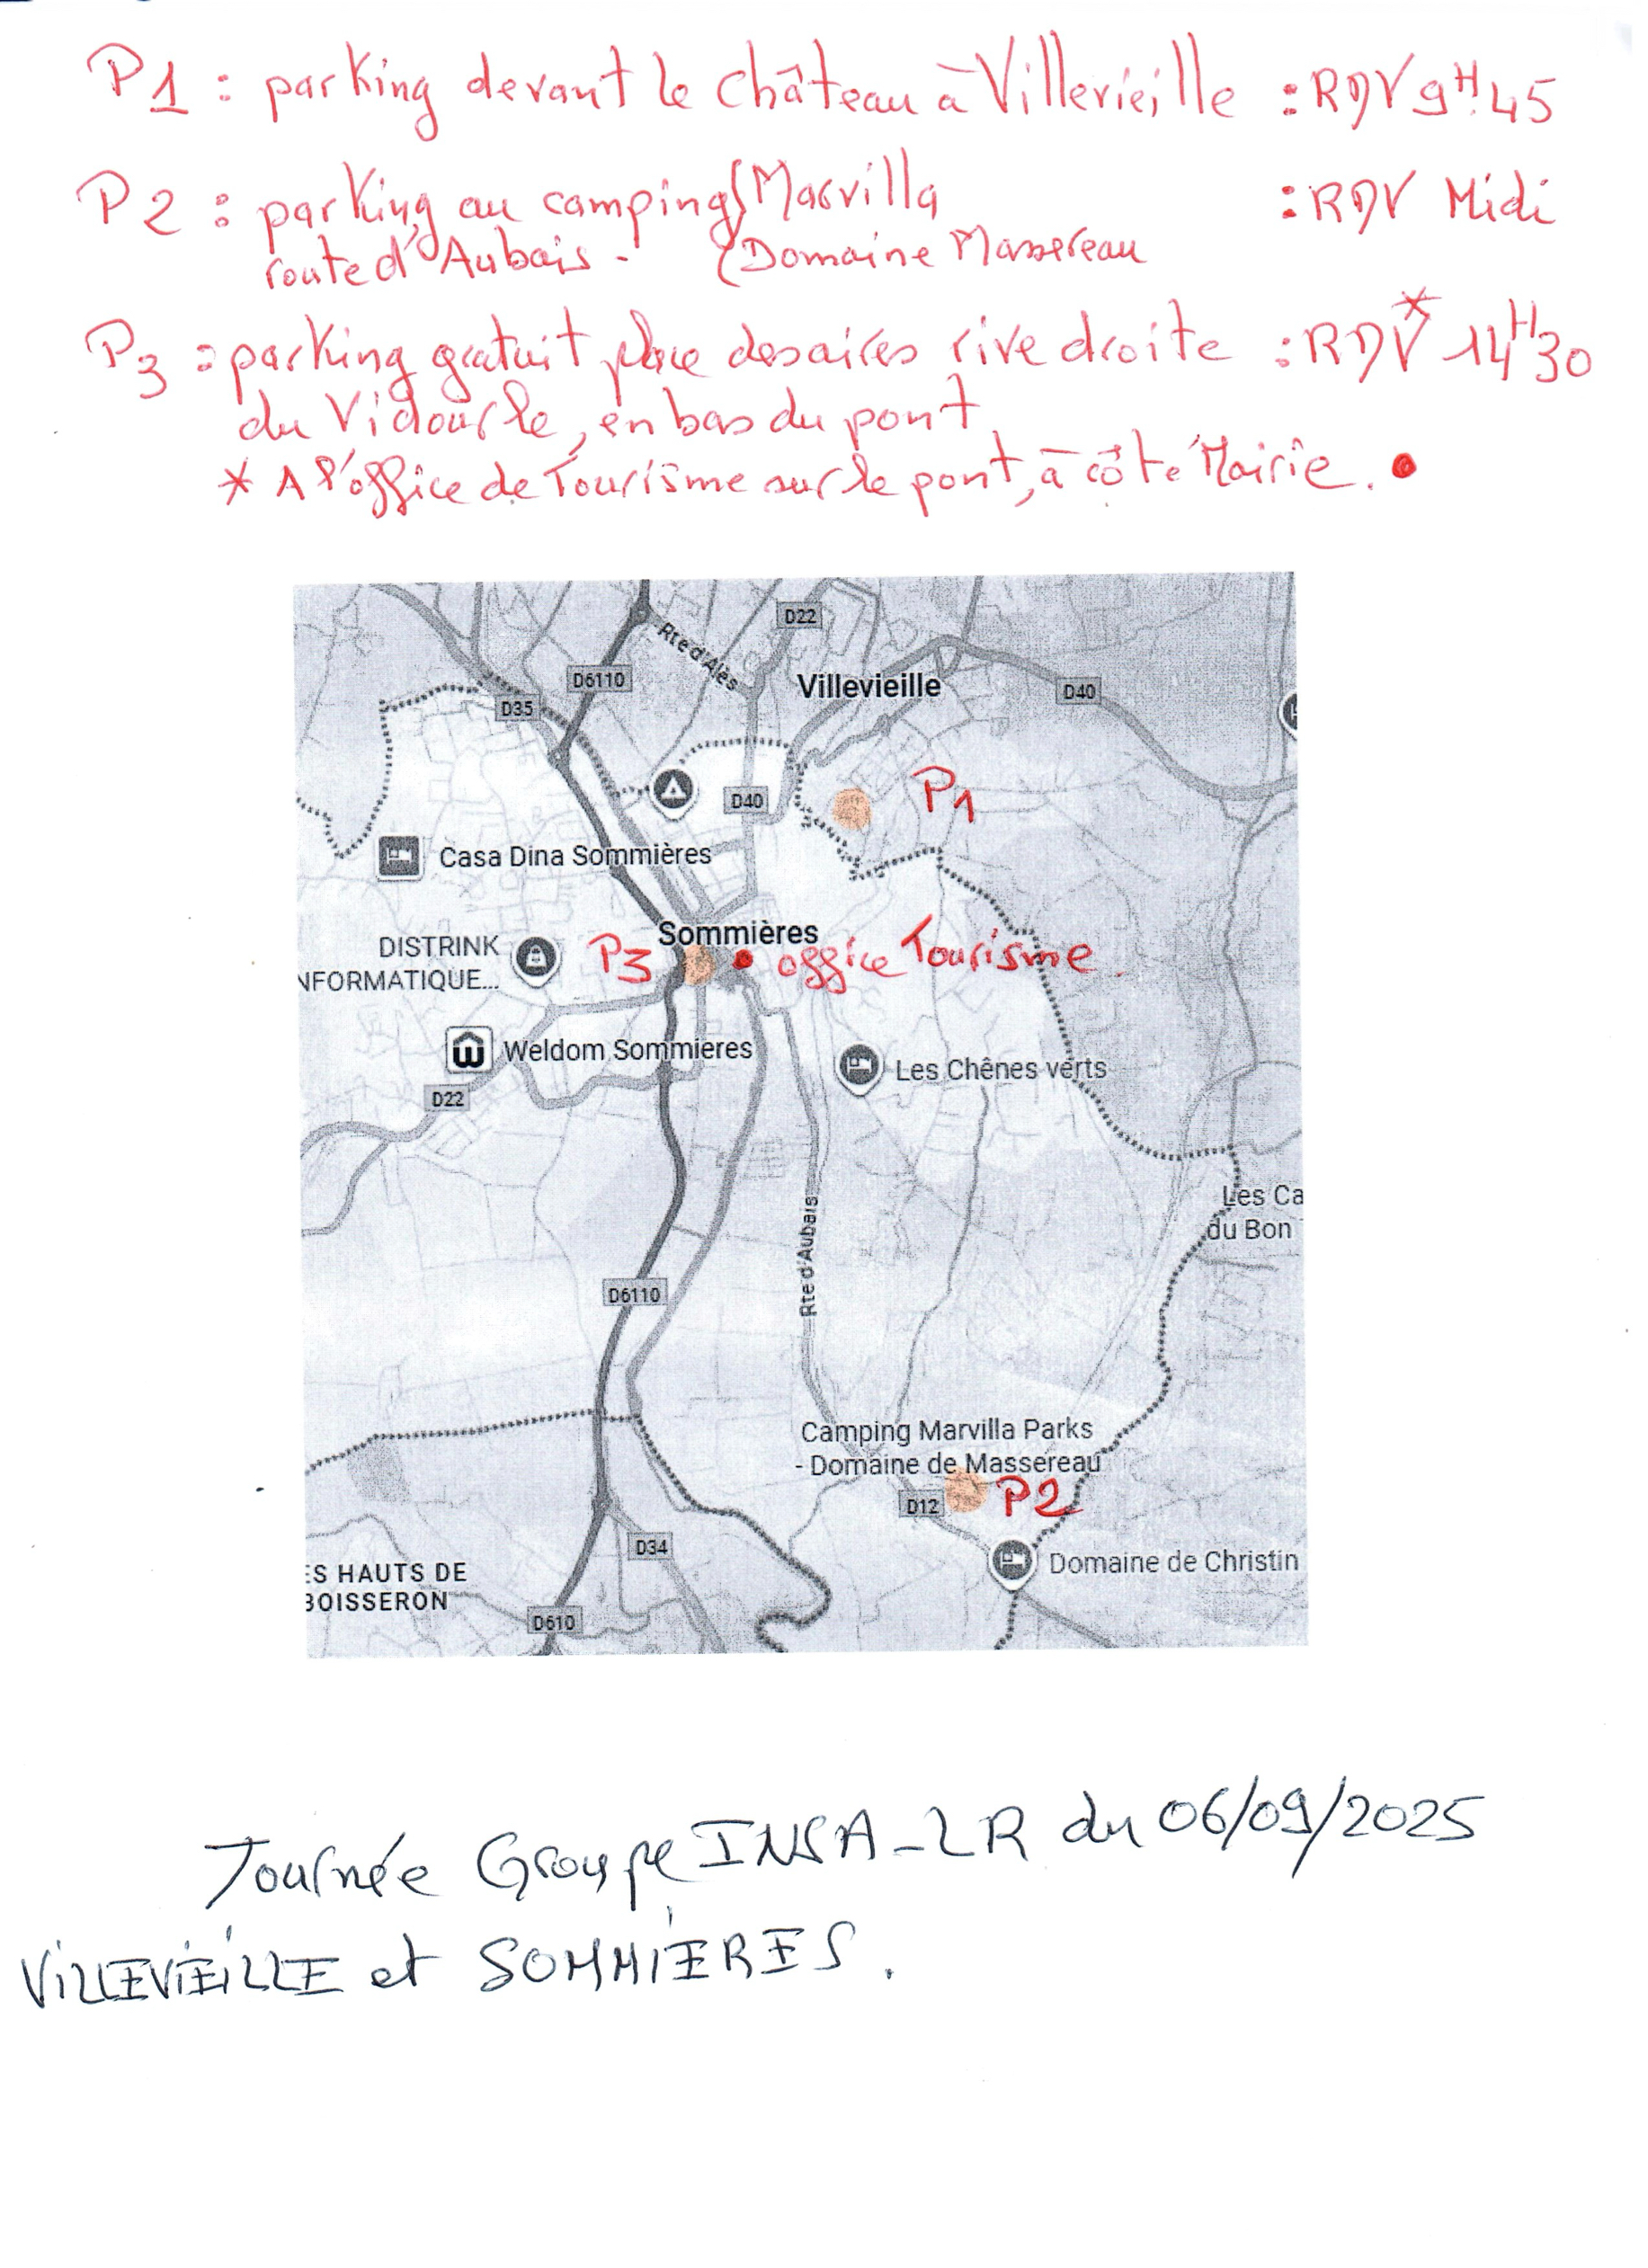 P1 : parking devant le château à Villevieille : RDV 9H45
P2 : parking au camping Marvilla : RDV Midi
route d'Aubais - Domaine Massereau
P3 : parking gratuit place des aires rive droite : RDV* 14H30
du Vidourle, en bas du pont
* A l'office de Tourisme sur le pont, à côté Mairie.
D22
Rte d'Alès
D6110
Villevieille
D40
D35
P1
D40
Casa Dina Sommières
Sommières
DISTRINK
P3
office Tourisme.
NFORMATIQUE...
Weldom Sommieres
Les Chênes verts
D22
Les Ca
du Bon
Rte d'Aubais
D6110
Camping Marvilla Parks
- Domaine de Massereau
D12
P2
D34
Domaine de Christin
ES HAUTS DE
BOISSERON
D610
Journée Groupe INSA-LR du 06/09/2025
VILLEVIEILLE et SOMMIÈRES.